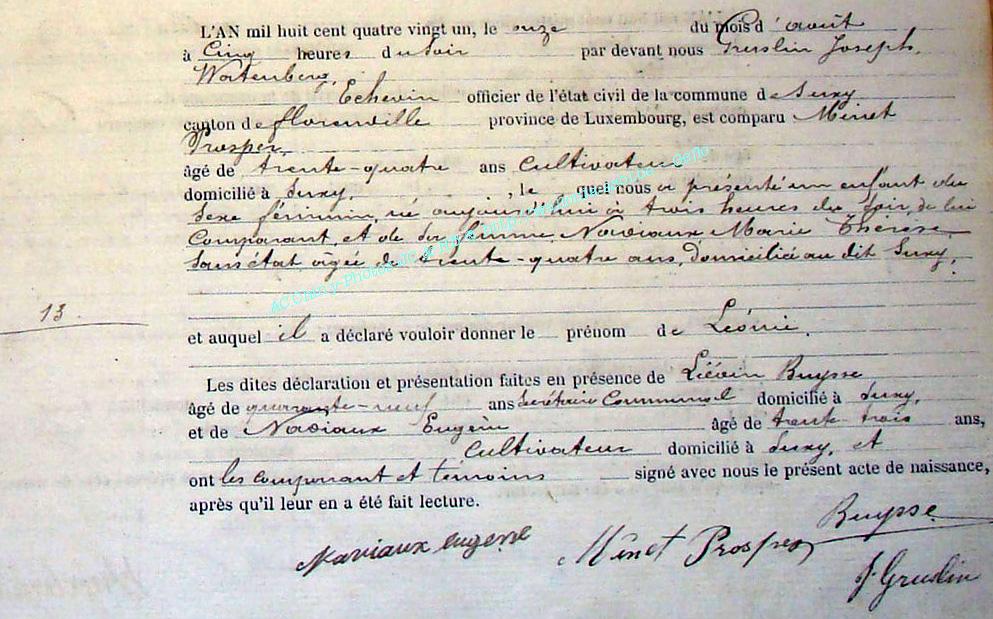 L'AN mil huit cent quatre vingt un, le onze du mois d'août
à Cinq heures du soir par devant nous Gruslin Joseph,
Watenberg,
Echevin officier de l'état civil de la commune de Suxy
canton de florenville province de Luxembourg, est comparu Minet
Prosper,
âgé de trente-quatre ans Cultivateur
domicilié à Suxy, , le quel nous a présenté un enfant du
Sexe féminin, né aujourd'hui à trois heures du soir, de lui
Comparant, et de sa femme Naviaux Marie Thérèse,
Sans état, âgée de trente-quatre ans, domiciliée au dit Suxy.
13.
et auquel il a déclaré vouloir donner le prénom de Léonie.
Les dites déclaration et présentation faites en présence de Liévin Buysse
âgé de quarante-neuf ans Secrétaire Communal domicilié à Suxy,
et de Naviaux Eugène âgé de trente-trois ans,
Cultivateur domicilié à Suxy, et
ont les comparant et témoins signé avec nous le présent acte de naissance,
après qu'il leur en a été fait lecture.
Buysse
Naviaux eugene Minet Prosper
J Gruslin